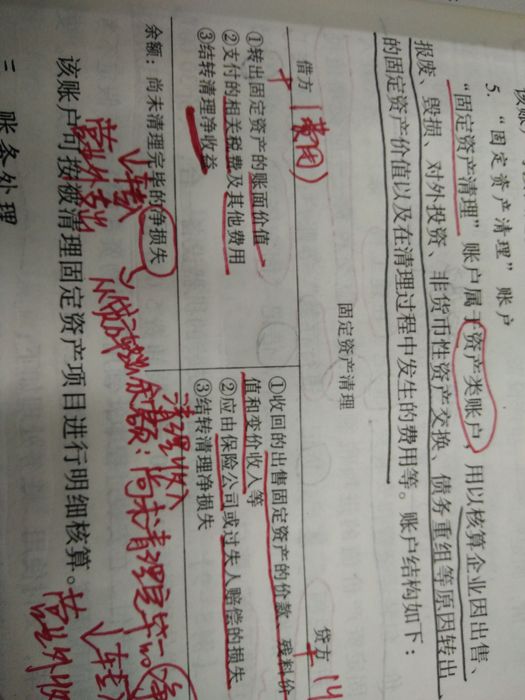 5.“固定资产清理”账户
“固定资产清理”账户属于资产类账户，用以核算企业因出售、
报废、毁损、对外投资、非货币性资产交换、债务重组等原因转出
的固定资产价值以及在清理过程中发生的费用等。账户结构如下：
固定资产清理
借方
贷方
①转出固定资产的账面价值
②支付的相关税费及其他费用
③结转清理净收益
①收回的出售固定资产的价款、残料价
值和变价收入等
②应由保险公司或过失人赔偿的损失
③结转清理净损失
清理收入
余额：尚未清理完毕的净损失
余额：尚未清理完毕的净
转入
营业外支出
转入
营业外收
该账户可按被清理固定资产项目进行明细核算。
二 账务处理